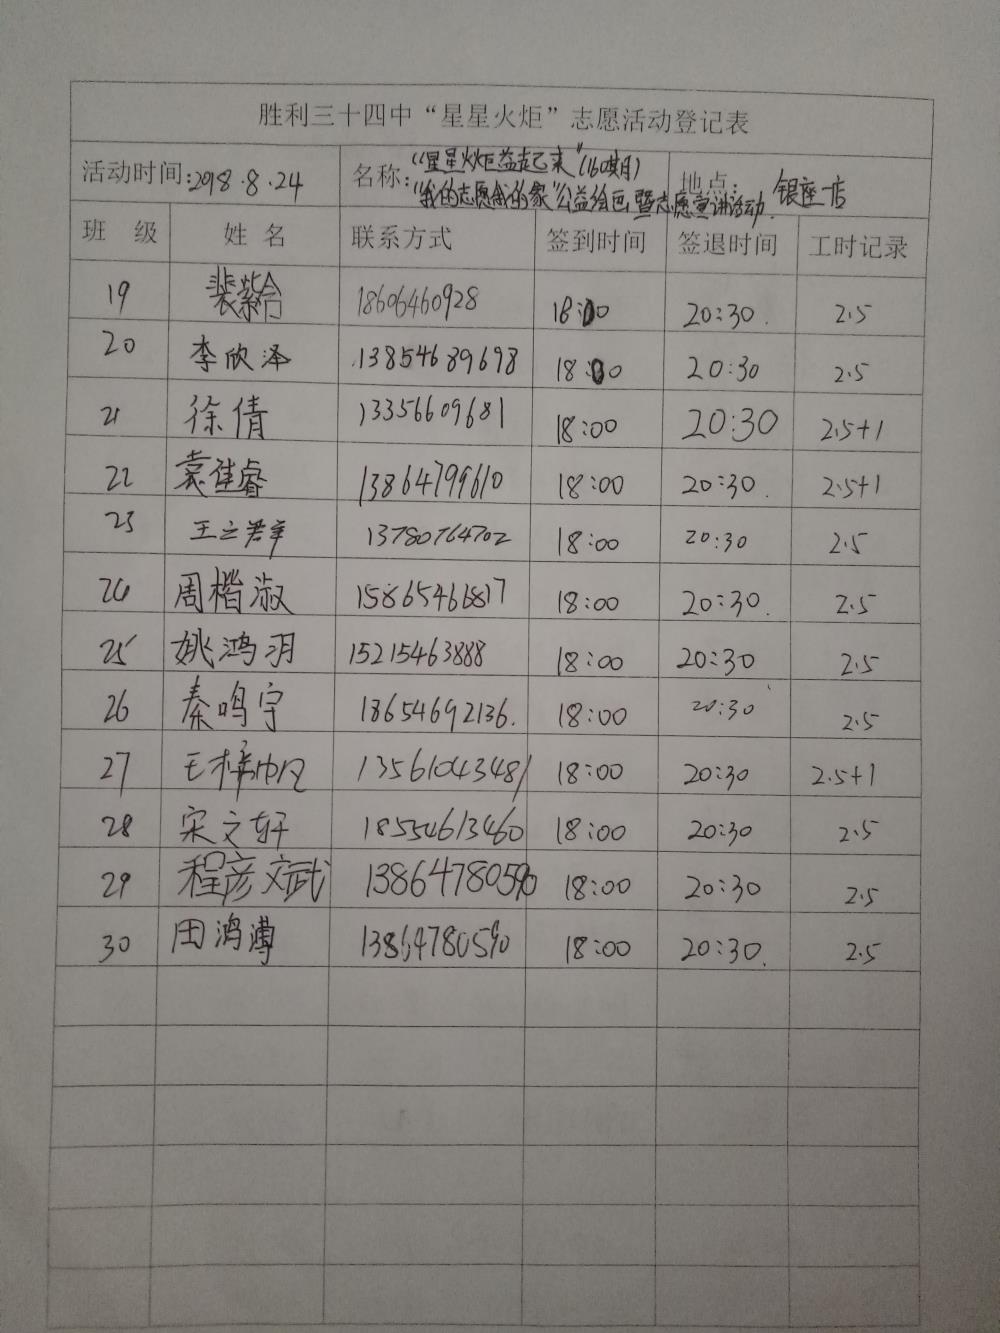 胜利三十四中“星星火炬”志愿活动登记表
活动时间:2018.8.24 名称:“星星火炬益起来”(160期) “我的志愿我的家”公益绘画暨志愿宣讲活动. 地点: 银座一店
班 级 姓 名 联系方式 签到时间 签退时间 工时记录
19 裴紫含 18606460928 18:00 20:30. 2.5
20 李欣泽 13854689698 18:00 20:30 2.5
21 徐倩 13356609681 18:00 20:30 2.5+1
22 袁佳睿 13864799610 18:00 20:30. 2.5+1
23 王 13780764702 18:00 20:30 2.5
24 周楷淑 15865466817 18:00 20:30. 2.5
25 姚鸿羽 15215463888 18:00 20:30 2.5
26 秦鸣宇 18654692136. 18:00 20:30 2.5
27 王梓帆 13561043481 18:00 20:30 2.5+1
28 宋文轩 18554613460 18:00 20:30 2.5
29 程彦斌 13864780590 18:00 20:30 2.5
30 田鸿溥 13864780590 18:00 20:30. 2.5